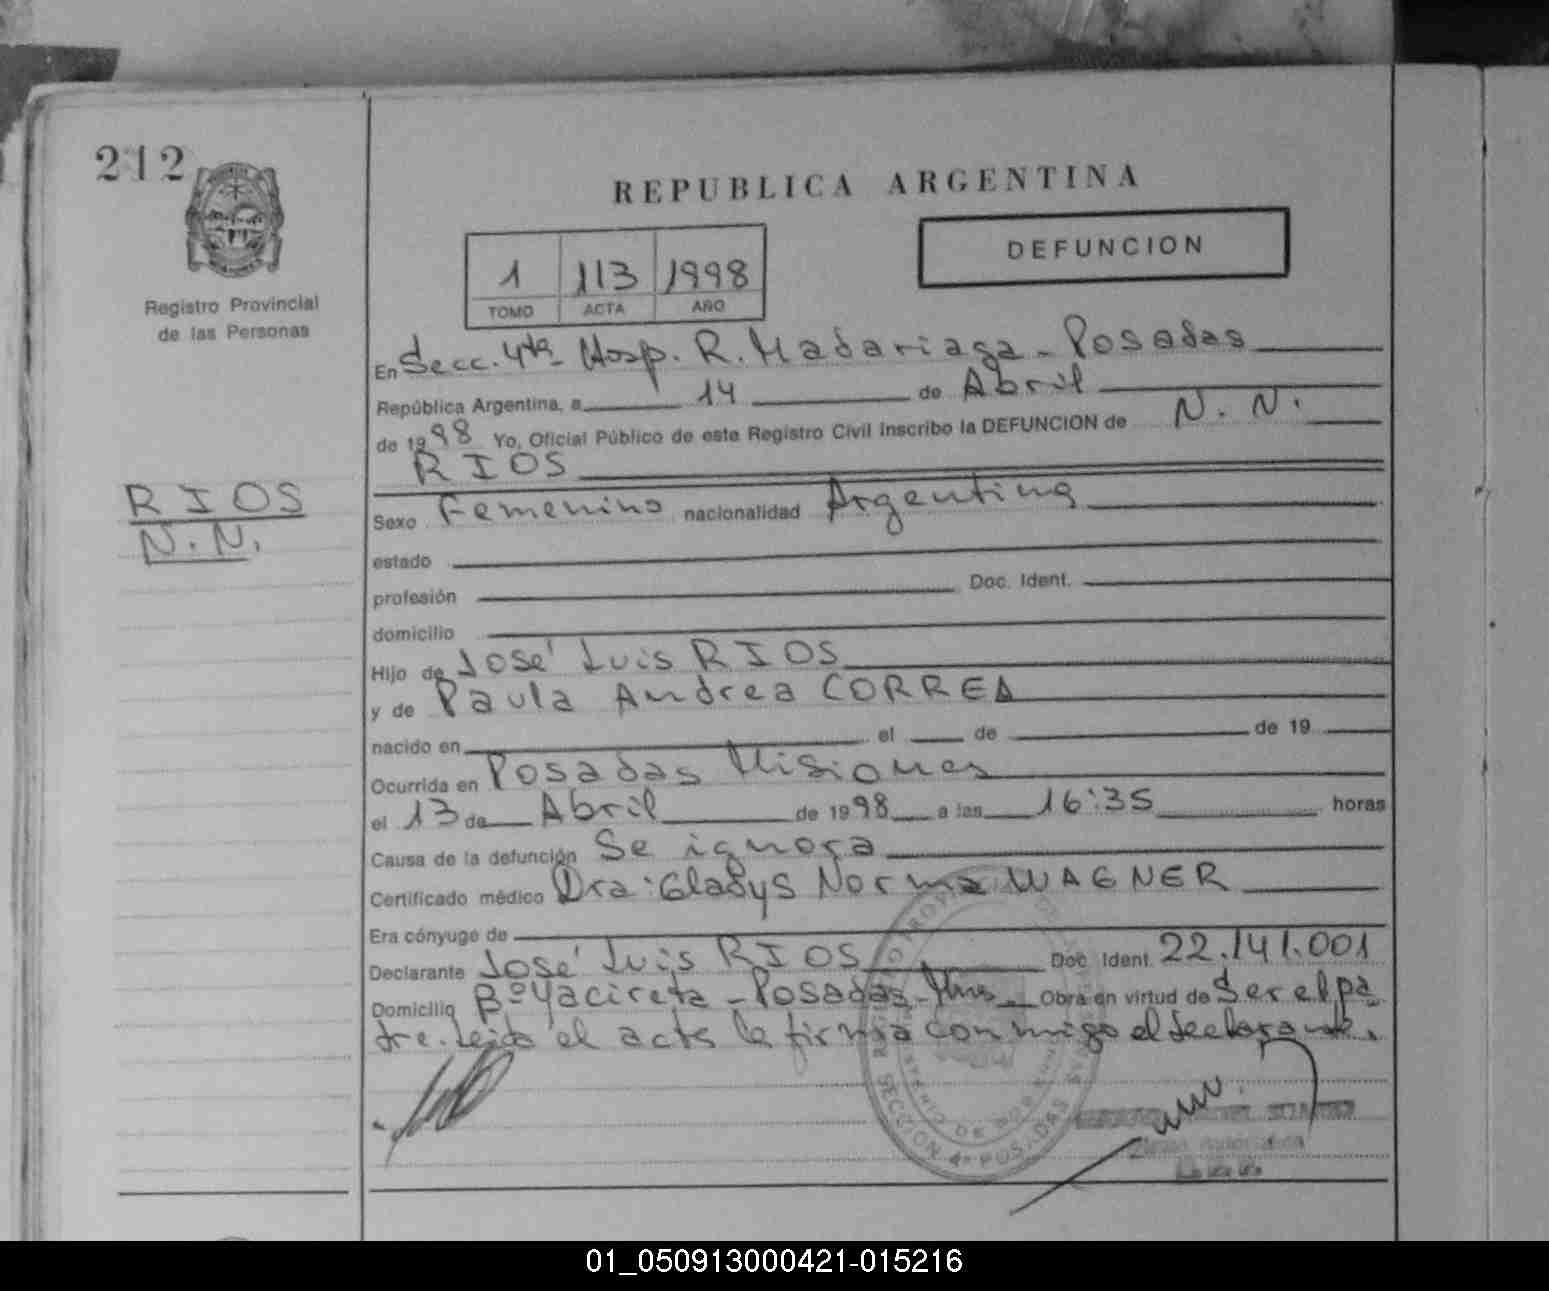 212
REPUBLICA ARGENTINA
DEFUNCION
1 113 1998
TOMO ACTA AÑO
Registro Provincial
de las Personas
En Secc. 4ta - Hosp. R. Madariaga - Posadas
República Argentina, a 14 de Abril
de 1998 Yo, Oficial Público de este Registro Civil inscribo la DEFUNCION de N. N.
RIOS
RIOS
N.N.
Sexo Femenino nacionalidad Argentina
estado
profesión Doc. Ident.
domicilio
Hijo de José Luis RIOS
y de Paula Andrea CORREA
nacido en el de de 19
Ocurrida en Posadas Misiones
el 13 de Abril de 1998 a las 16:35 horas
Causa de la defunción Se ignora
Certificado médico Dra: Gladys Norma WAGNER
Era cónyuge de
Declarante José Luis RIOS Doc. Ident. 22.141.001
Domicilio Bº Yacireta - Posadas - Mnes. Obra en virtud de Ser el pa
dre. Leida el acta la firma conmigo el declarante.
SECCION 4ª POSADAS
01_050913000421-015216